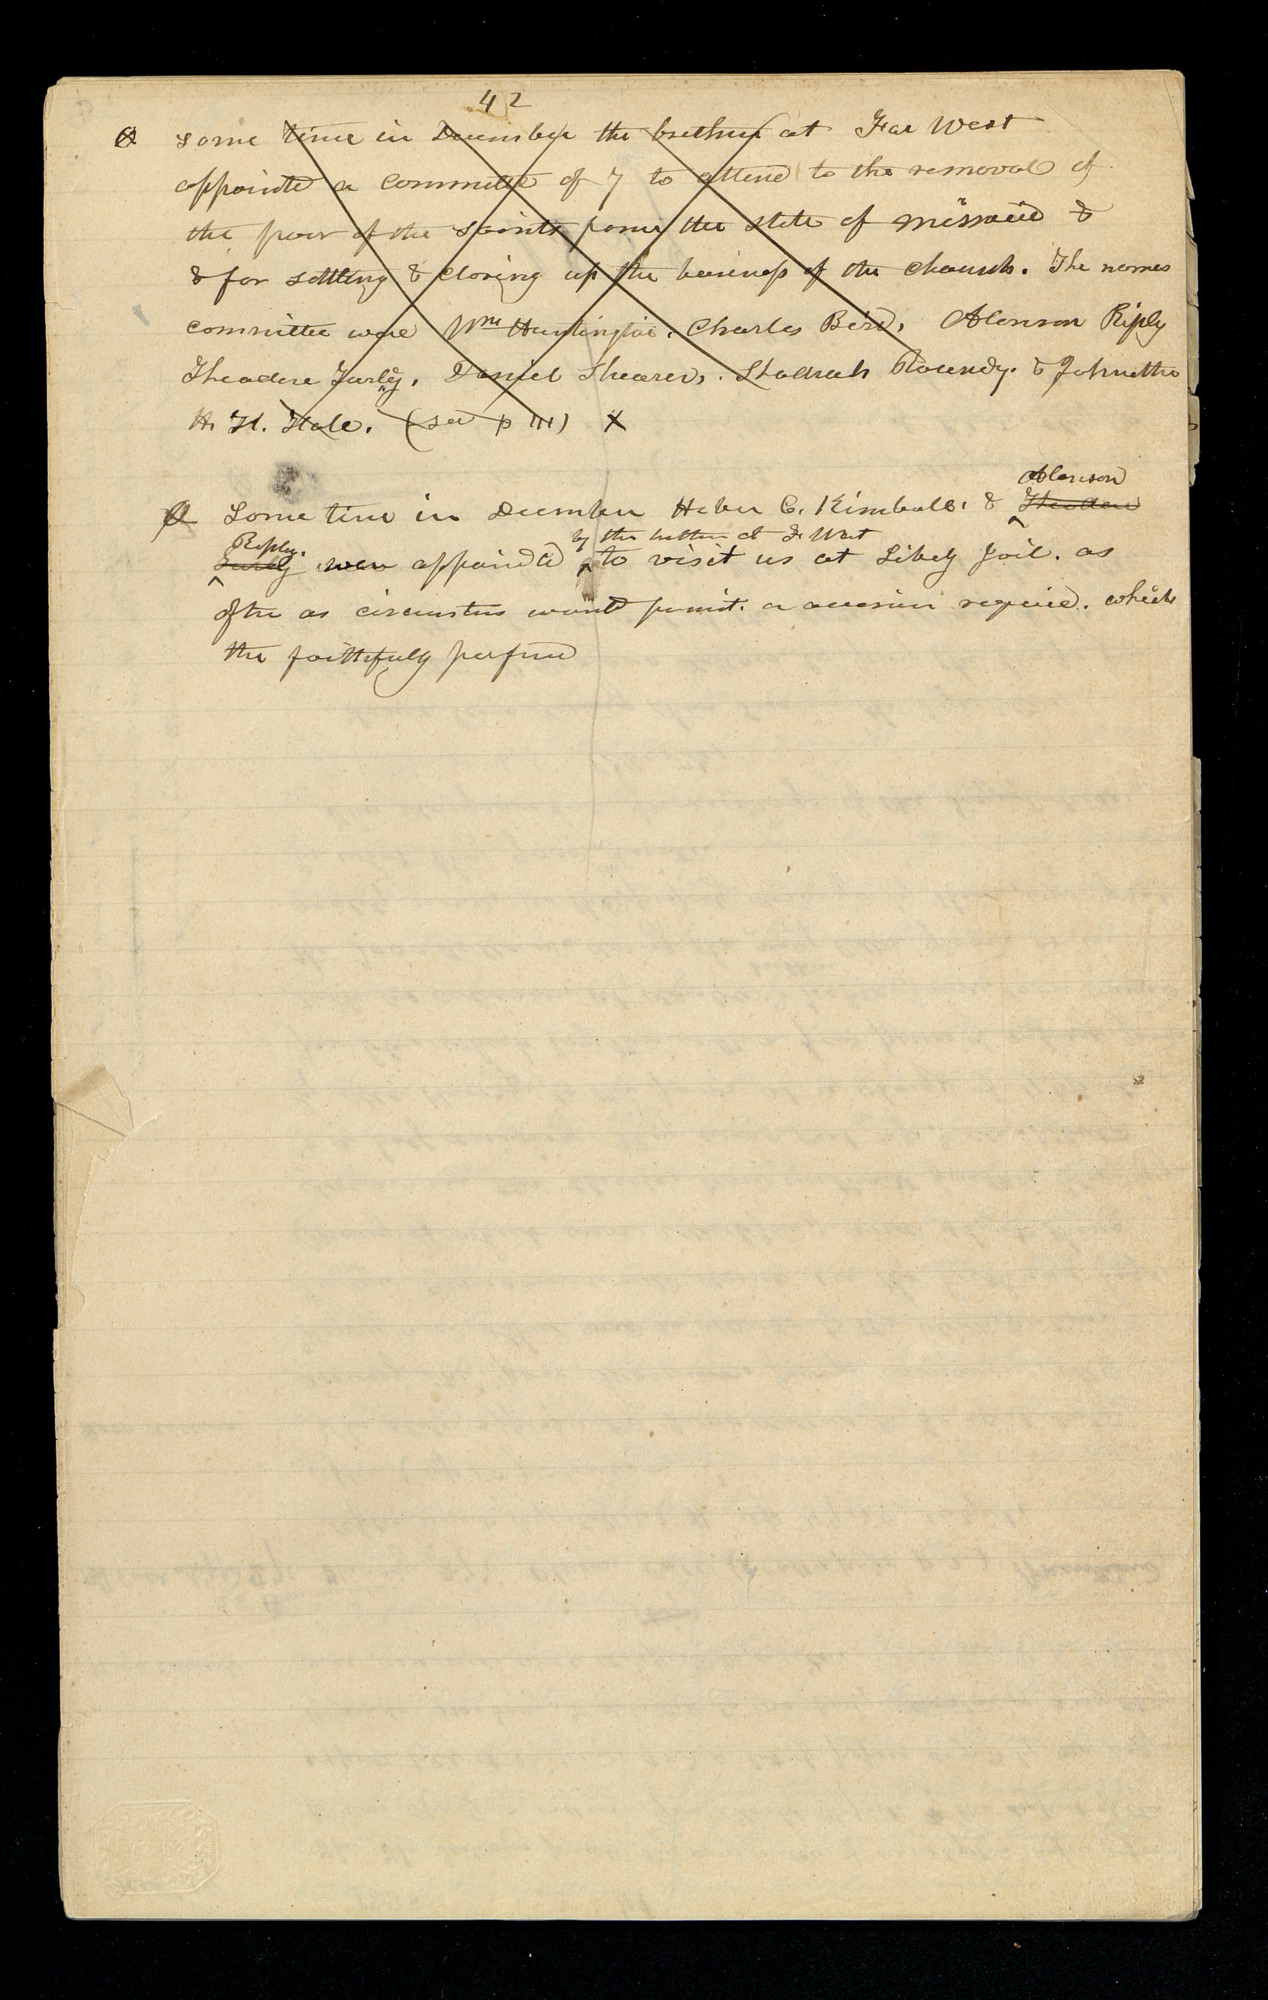 42
some time in December the brethren at Far West
appointed a committee of 7 to attend to the removal of
the poor of the saints from the state of missouri &
& for settling & closing up the business of the church. The names
committee were Wm Huntington. Charles Bird. Alonson Riply
Theodore Turly. Daniel Shearer. Shadrach Roundy. &
H. H. Hale. (see p III) X
Alonson
Some time in December Heber C. Kimball. & Theodore
Riply. by the brethren at F. West
Turly were appointed to visit us at Liberty Jail. as
ofte as would permit. or occasion required. which
the faithfuly perfmed